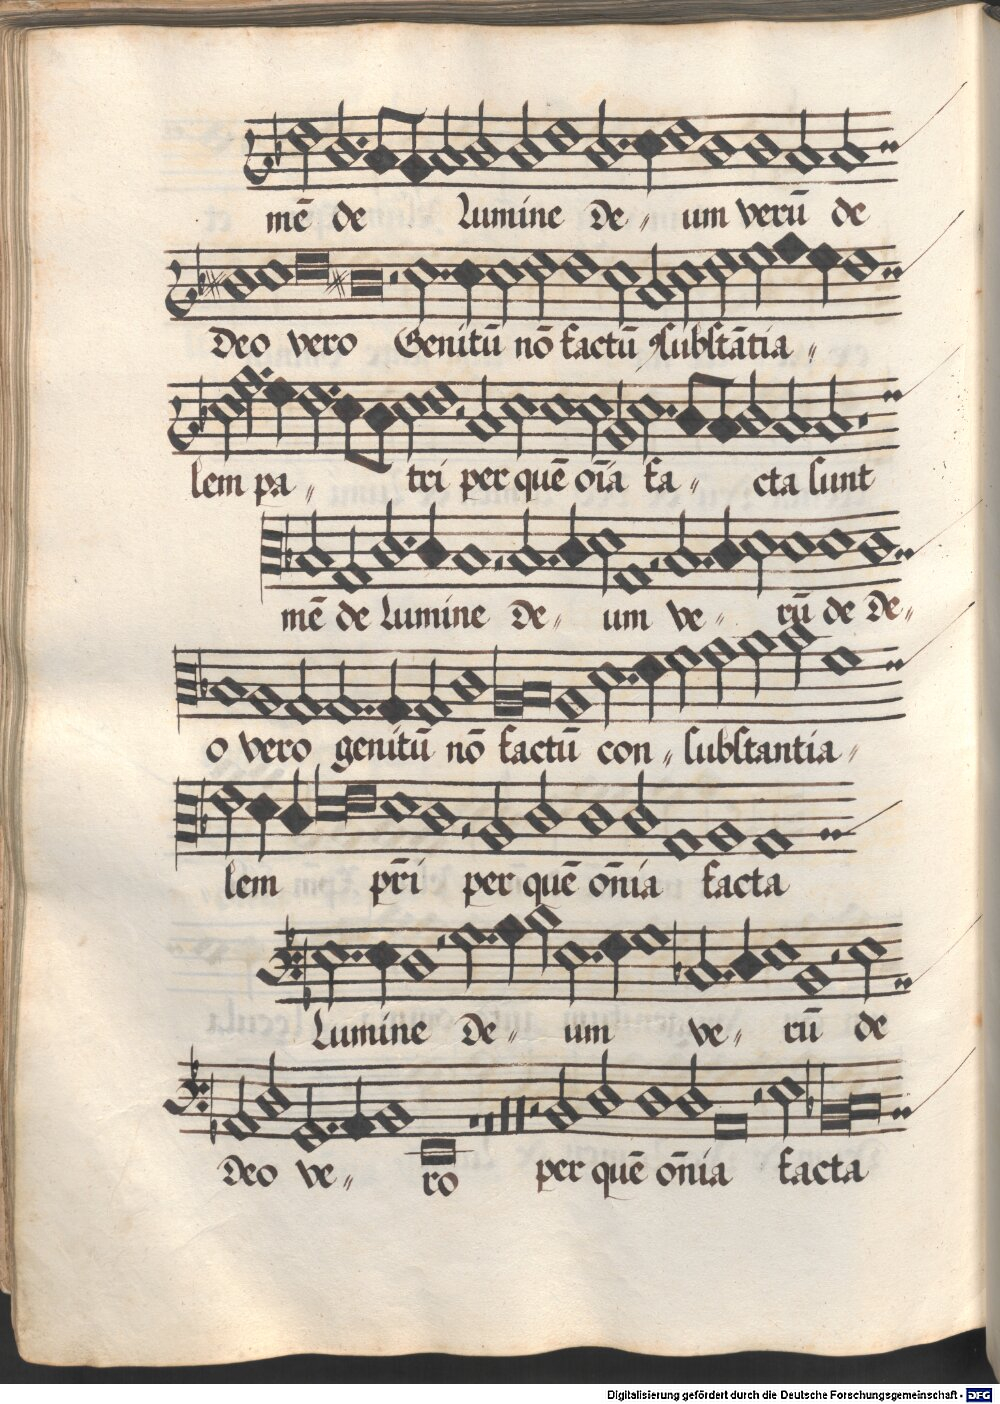 mē de lumine De〃 um verū de
Deo vero Genitū nō factū Substātia〃
lem pa〃 tri per quē oīa fa〃 cta sunt
mē de lumine De〃 um ve〃 rū de De〃
o vero genitū nō factū con〃 substantia〃
lem pr̄i per quē on̄ia facta
Lumine De〃 um ve〃 rū de
Deo ve〃 ro per quē on̄ia facta
Digitalisierung gefördert durch die Deutsche Forschungsgemeinschaft - DFG